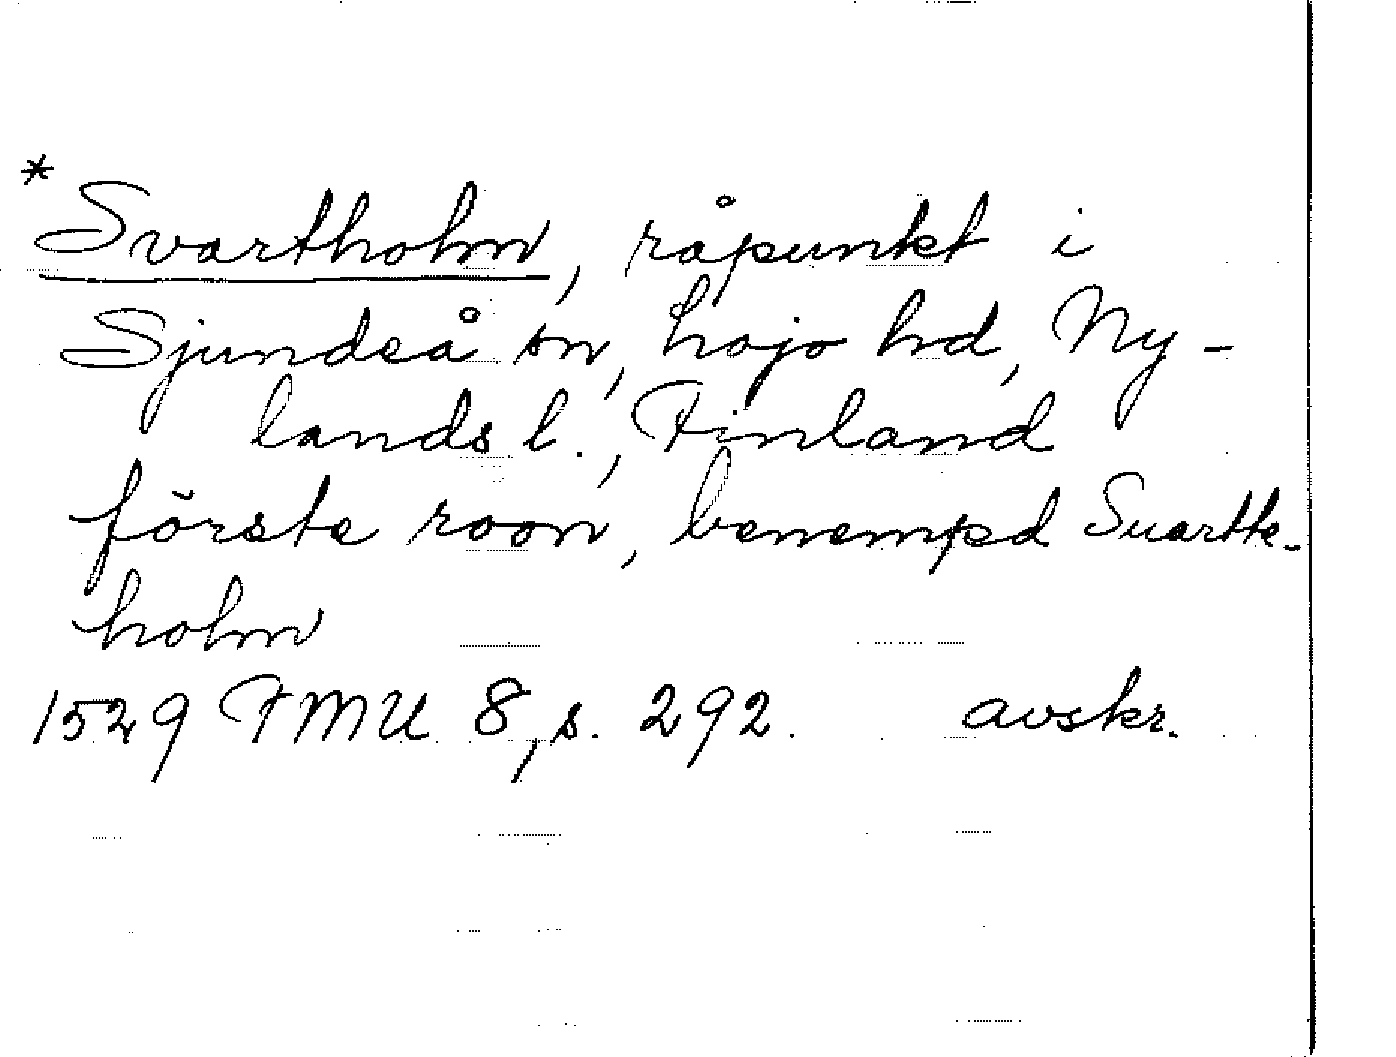 *Svartholm, råpunkt i
Sjundeå sn, Lojo hd, Ny-
lands l., Finland
förste roon, benempd Suartte-
holm
1529 FMU 8, s. 292. avskr.